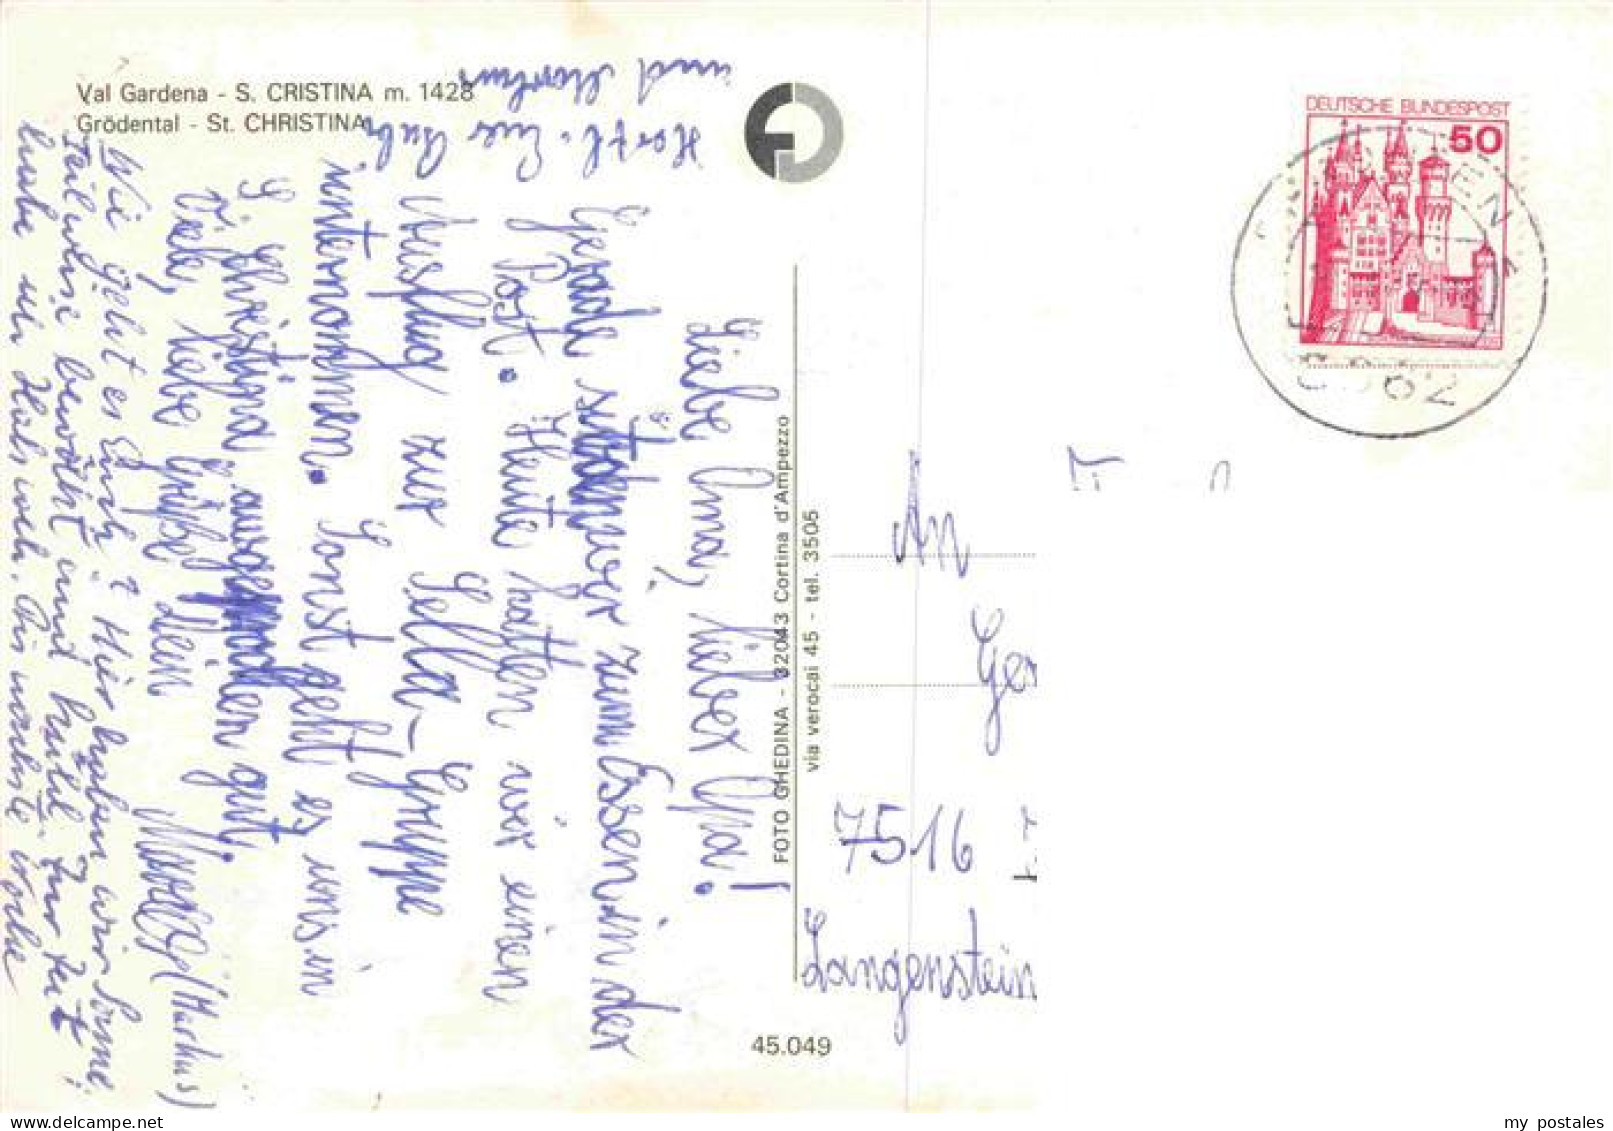 Val Gardena - S. CRISTINA m. 1428
Grödental - St. CHRISTINA
Liebe Oma, lieber Opa!
Gerade sitzen wir zum Essen in der
Post. Heute hatten wir einen
Ausflug zur Sella-Gruppe
unternommen. Sonst geht es uns in
S. Christina ausgezeichnet gut.
Viele, liebe Grüße Dein
(Markus)
Wie geht es Euch? Hier haben wir Sonne,
teilweise bewölkt und kühl. Zur Zeit
habe ich Halsweh. Bis nächste Woche
Herzl. Eure
und Markus
FOTO GHEDINA - 32043 Cortina d'Ampezzo
via verocai 45 - tel. 3505
45.049
DEUTSCHE BUNDESPOST
50
An
7516
Langenstein
my postales